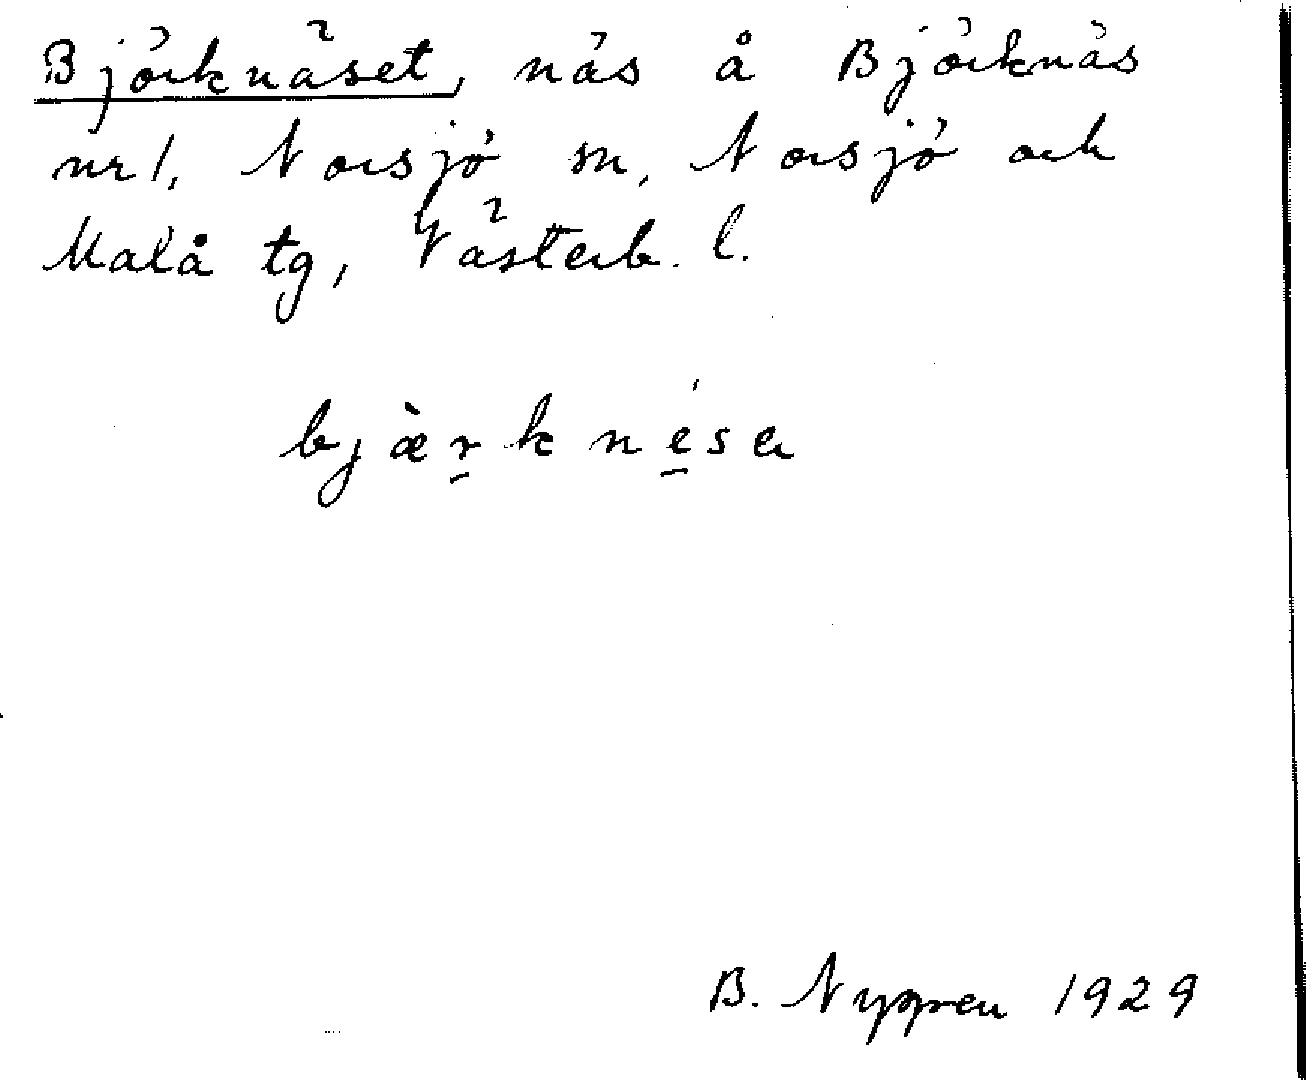 Björknäset, näs å Björknäs
nr 1, Norsjö sn, Norsjö och
Malå tg, Västerb. l.
bjæ̀r̠kné̠sa
B. Nygren 1929